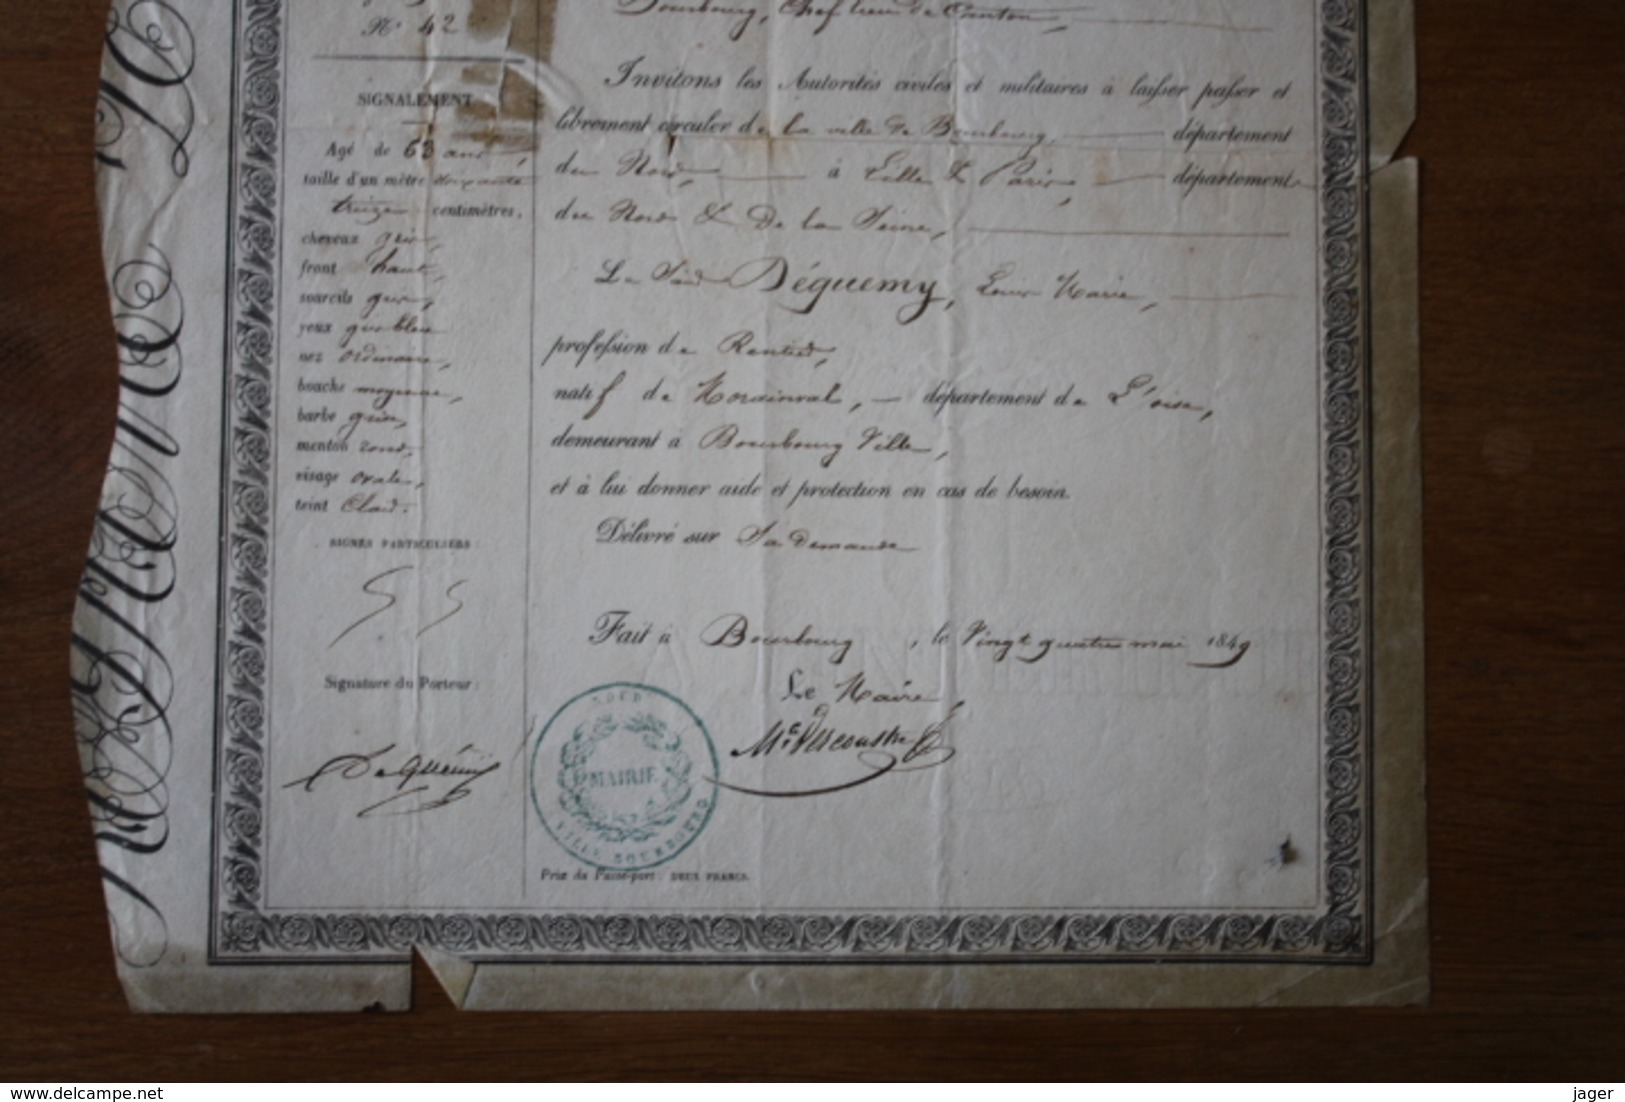 N° 42
SIGNALEMENT
Agé de 63 ans,
taille d'un mètre soixante
treize centimètres.
cheveux gris,
front haut,
sourcils gris,
yeux gris bleu
nez ordinaire,
bouche moyenne,
barbe grise,
menton rond,
visage ovale,
teint Clair.
SIGNES PARTICULIERS :
Signature du Porteur :
De Guémy
Bourbourg, Chef lieu de Canton,
Invitons les Autorités civiles et militaires à laisser passer et
librement circuler de la ville de Bourbourg, département
du Nord, à Lille & Paris, département
du Nord & De la Seine,
Le Sieur Déguemy, Louis Marie,
profession de Rentier,
natif de Morainval, département de L'oise,
demeurant à Bourbourg Ville,
et à lui donner aide et protection en cas de besoin.
Délivré sur Sa demande
Fait à Bourbourg, le Vingt quatre mai 1849
Le Maire
NORD
MAIRIE
VILLE BOURBOURG
Prix du Passe-port : DEUX FRANCS.
© delcampe.net
jager